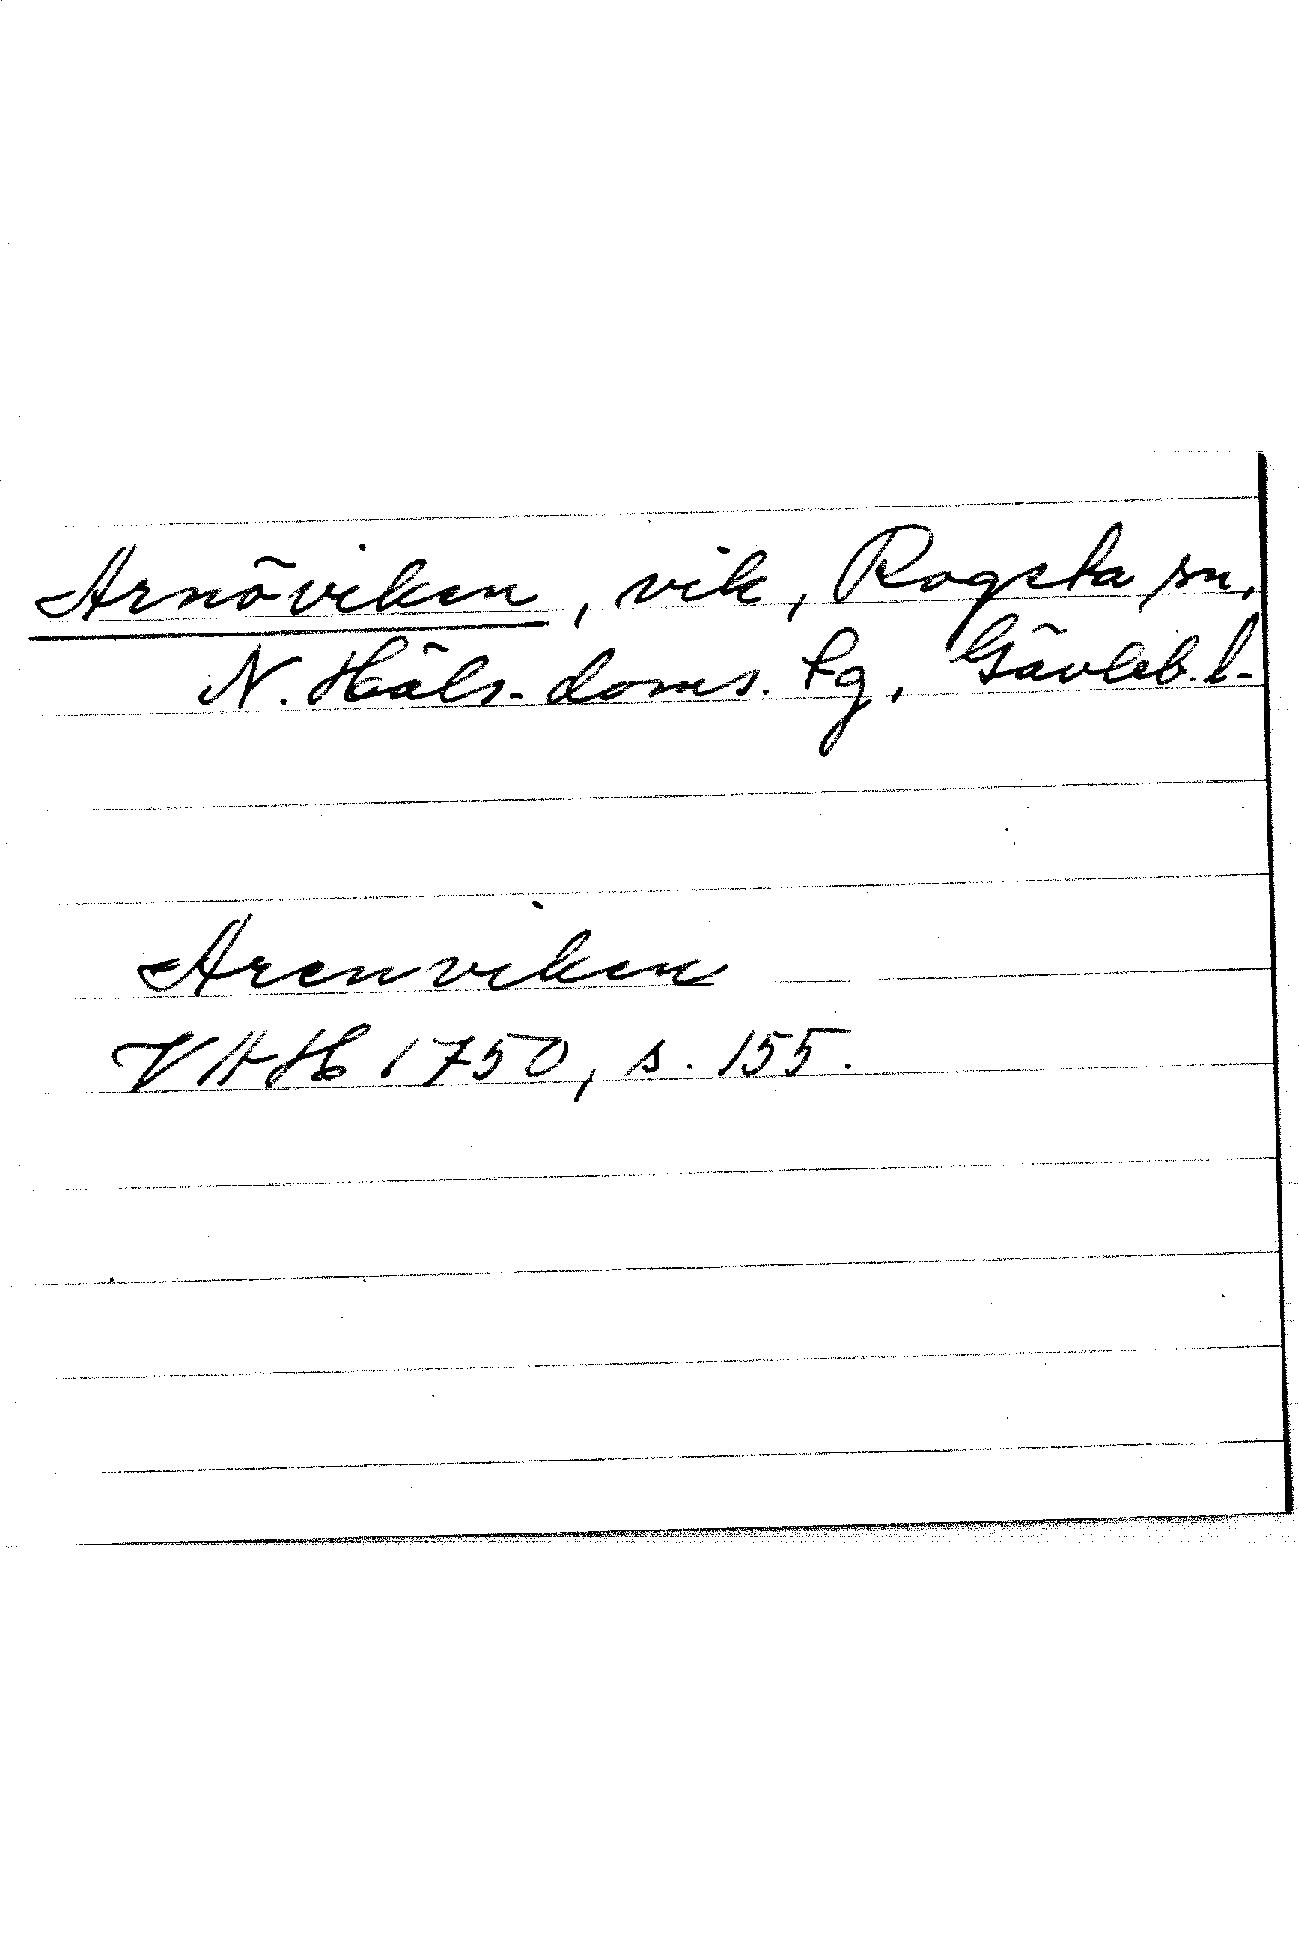 Arnöviken, vik, Rogsta sn,
N. Häls. doms. fg, Gävleb. l.
Arenviken
VAH 1750, s. 155.